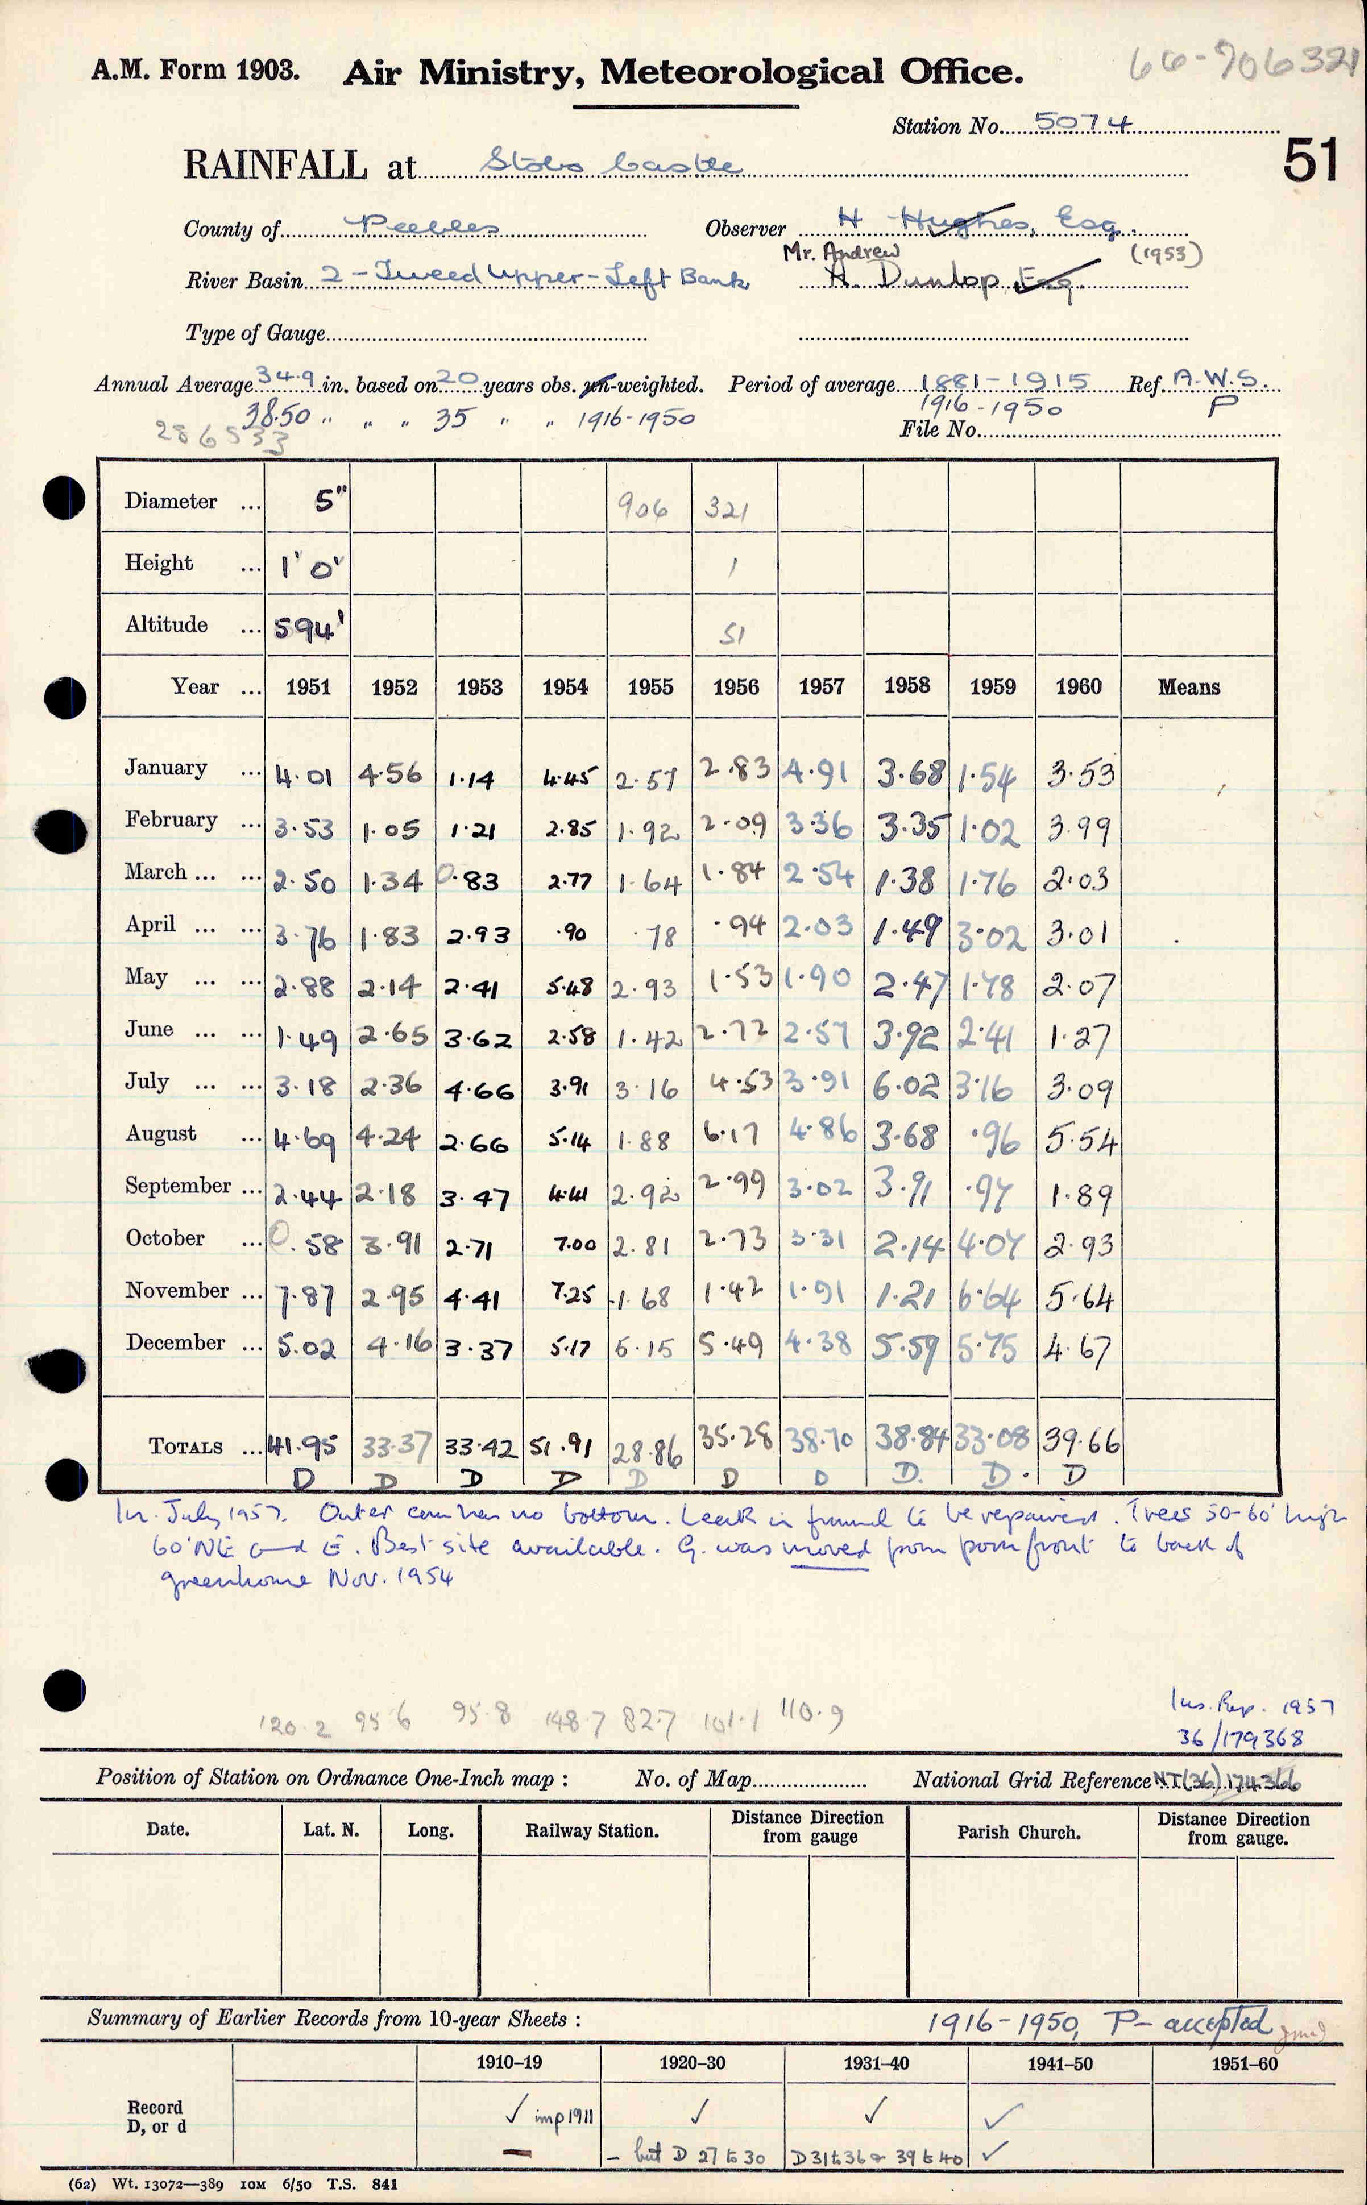 A.M. Form 1903. Air Ministry, Meteorological Office. 66-906321
Station No. 5074
RAINFALL at Stobo Castle 51
County of Peebles Observer H Hughes, Esq.
Mr. Andrew (1953)
River Basin 2 - Tweed Upper - Left Bank A. Dunlop, Esq.
Type of Gauge
Annual Average 34.9 in. based on 20 years obs. un-weighted. Period of average 1881-1915 Ref. A.W.S.
38.50 " " " 35 " " 1916-1950 1916-1950 P
286533 File No.
Diameter ... 5" 906 321
Height ... 1' 0" 1
Altitude ... 594' 51
Year ... 1951 1952 1953 1954 1955 1956 1957 1958 1959 1960 Means
January ... 4.01 4.56 1.14 4.45 2.57 2.83 4.91 3.68 1.54 3.53
February ... 3.53 1.05 1.21 2.85 1.92 2.09 3.36 3.35 1.02 3.99
March ... ... 2.50 1.34 0.83 2.77 1.64 1.84 2.54 1.38 1.76 2.03
April ... ... 3.76 1.83 2.93 .90 .78 .94 2.03 1.49 3.02 3.01
May ... ... 2.88 2.14 2.41 5.48 2.93 1.53 1.90 2.47 1.78 2.07
June ... ... 1.49 2.65 3.62 2.58 1.42 2.72 2.57 3.92 2.41 1.27
July ... ... 3.18 2.36 4.66 3.91 3.16 4.53 3.91 6.02 3.16 3.09
August ... 4.69 4.24 2.66 5.14 1.88 6.17 4.86 3.68 .96 5.54
September ... 2.44 2.18 3.47 4.41 2.92 2.99 3.02 3.91 .97 1.89
October ... 0.58 3.91 2.71 7.00 2.81 2.73 3.31 2.14 4.07 2.93
November ... 7.87 2.95 4.41 7.25 1.68 1.42 1.91 1.21 6.64 5.64
December ... 5.02 4.16 3.37 5.17 5.15 5.49 4.38 5.59 5.75 4.67
TOTALS ... 41.95 33.37 33.42 51.91 28.86 35.28 38.70 38.84 33.08 39.66
D D D D D D D D. D. D
In. July 1957. Outer can has no bottom. Leak in funnel to be repaired. Trees 50-60' high
60' NE and E. Best site available. G. was moved from front to back of
greenhouse Nov. 1954
120.2 95.6 95.8 148.7 82.7 101.1 110.9
Ins. Rep. 1957
36/179368
Position of Station on Ordnance One-Inch map : No. of Map National Grid Reference NT(36)174366
Date. Lat. N. Long. Railway Station. Distance from gauge Direction Parish Church. Distance from gauge. Direction
Summary of Earlier Records from 10-year Sheets : 1916-1950, P- accepted
1910–19 1920–30 1931–40 1941–50 1951–60
Record D, or d ✓ imp 1911 ✓ ✓ ✓
— - but D 27 to 30 D 31 to 36 & 39 to 40 ✓
(62) Wt. 13072—389 10M 6/50 T.S. 841